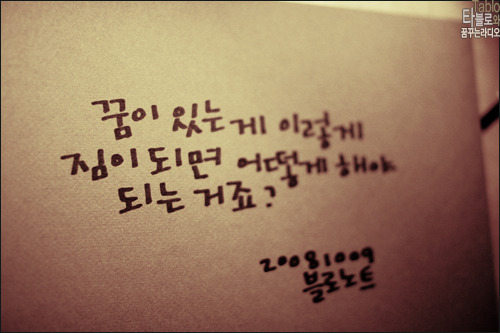 Tablo
타블로와
꿈꾸는라디오
꿈이 있는 게 이렇게
짐이 되면 어떻게 해야
되는 거죠?
20081009
블로노트